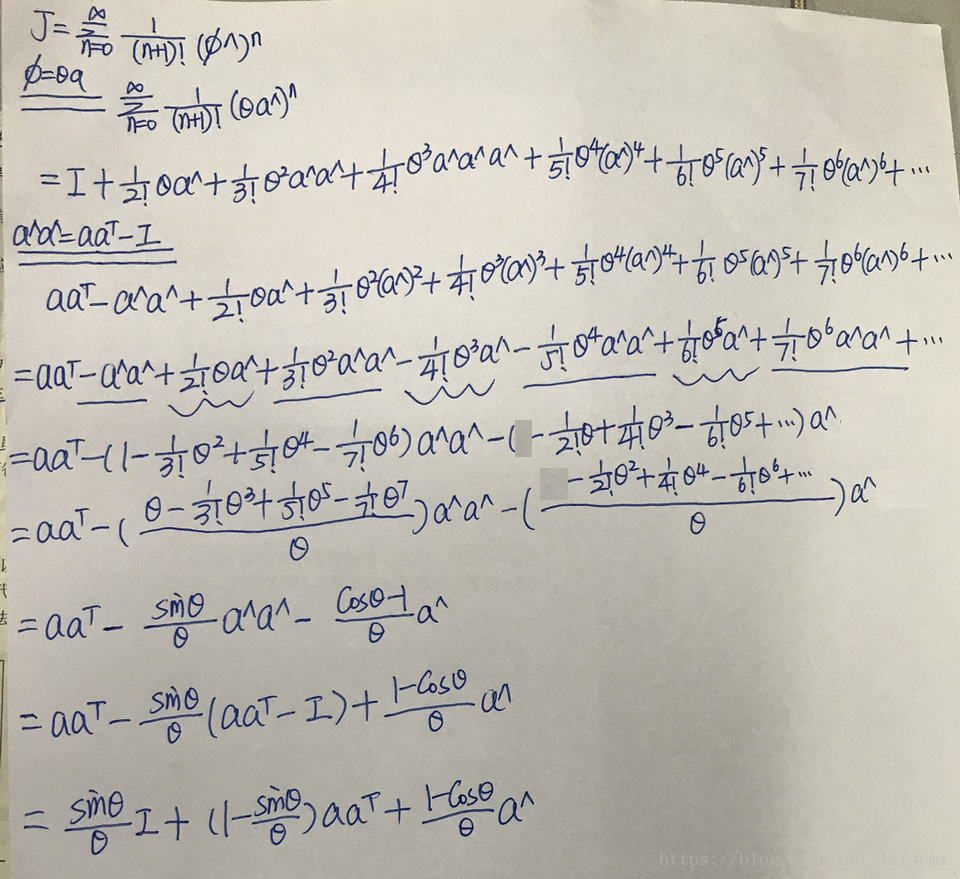 J = ∞ Σ n=0 1/(n+1)! (φ^)ⁿ
φ=θa
∞ Σ n=0 1/(n+1)! (θa^)ⁿ
= I + 1/2! θa^ + 1/3! θ²a^a^ + 1/4! θ³a^a^a^ + 1/5! θ⁴(a^)⁴ + 1/6! θ⁵(a^)⁵ + 1/7! θ⁶(a^)⁶ + ···
a^a^=aaᵀ-I
aaᵀ - a^a^ + 1/2! θa^ + 1/3! θ²(a^)² + 1/4! θ³(a^)³ + 1/5! θ⁴(a^)⁴ + 1/6! θ⁵(a^)⁵ + 1/7! θ⁶(a^)⁶ + ···
= aaᵀ - a^a^ + 1/2! θa^ + 1/3! θ²a^a^ - 1/4! θ³a^ - 1/5! θ⁴a^a^ + 1/6! θ⁵a^ + 1/7! θ⁶a^a^ + ···
= aaᵀ - (1 - 1/3! θ² + 1/5! θ⁴ - 1/7! θ⁶) a^a^ - (- 1/2! θ + 1/4! θ³ - 1/6! θ⁵ + ···) a^
= aaᵀ - ((θ - 1/3! θ³ + 1/5! θ⁵ - 1/7! θ⁷)/θ) a^a^ - ((- 1/2! θ² + 1/4! θ⁴ - 1/6! θ⁶ + ···)/θ) a^
= aaᵀ - sinθ/θ a^a^ - (cosθ-1)/θ a^
= aaᵀ - sinθ/θ (aaᵀ - I) + (1-cosθ)/θ a^
= sinθ/θ I + (1 - sinθ/θ) aaᵀ + (1-cosθ)/θ a^